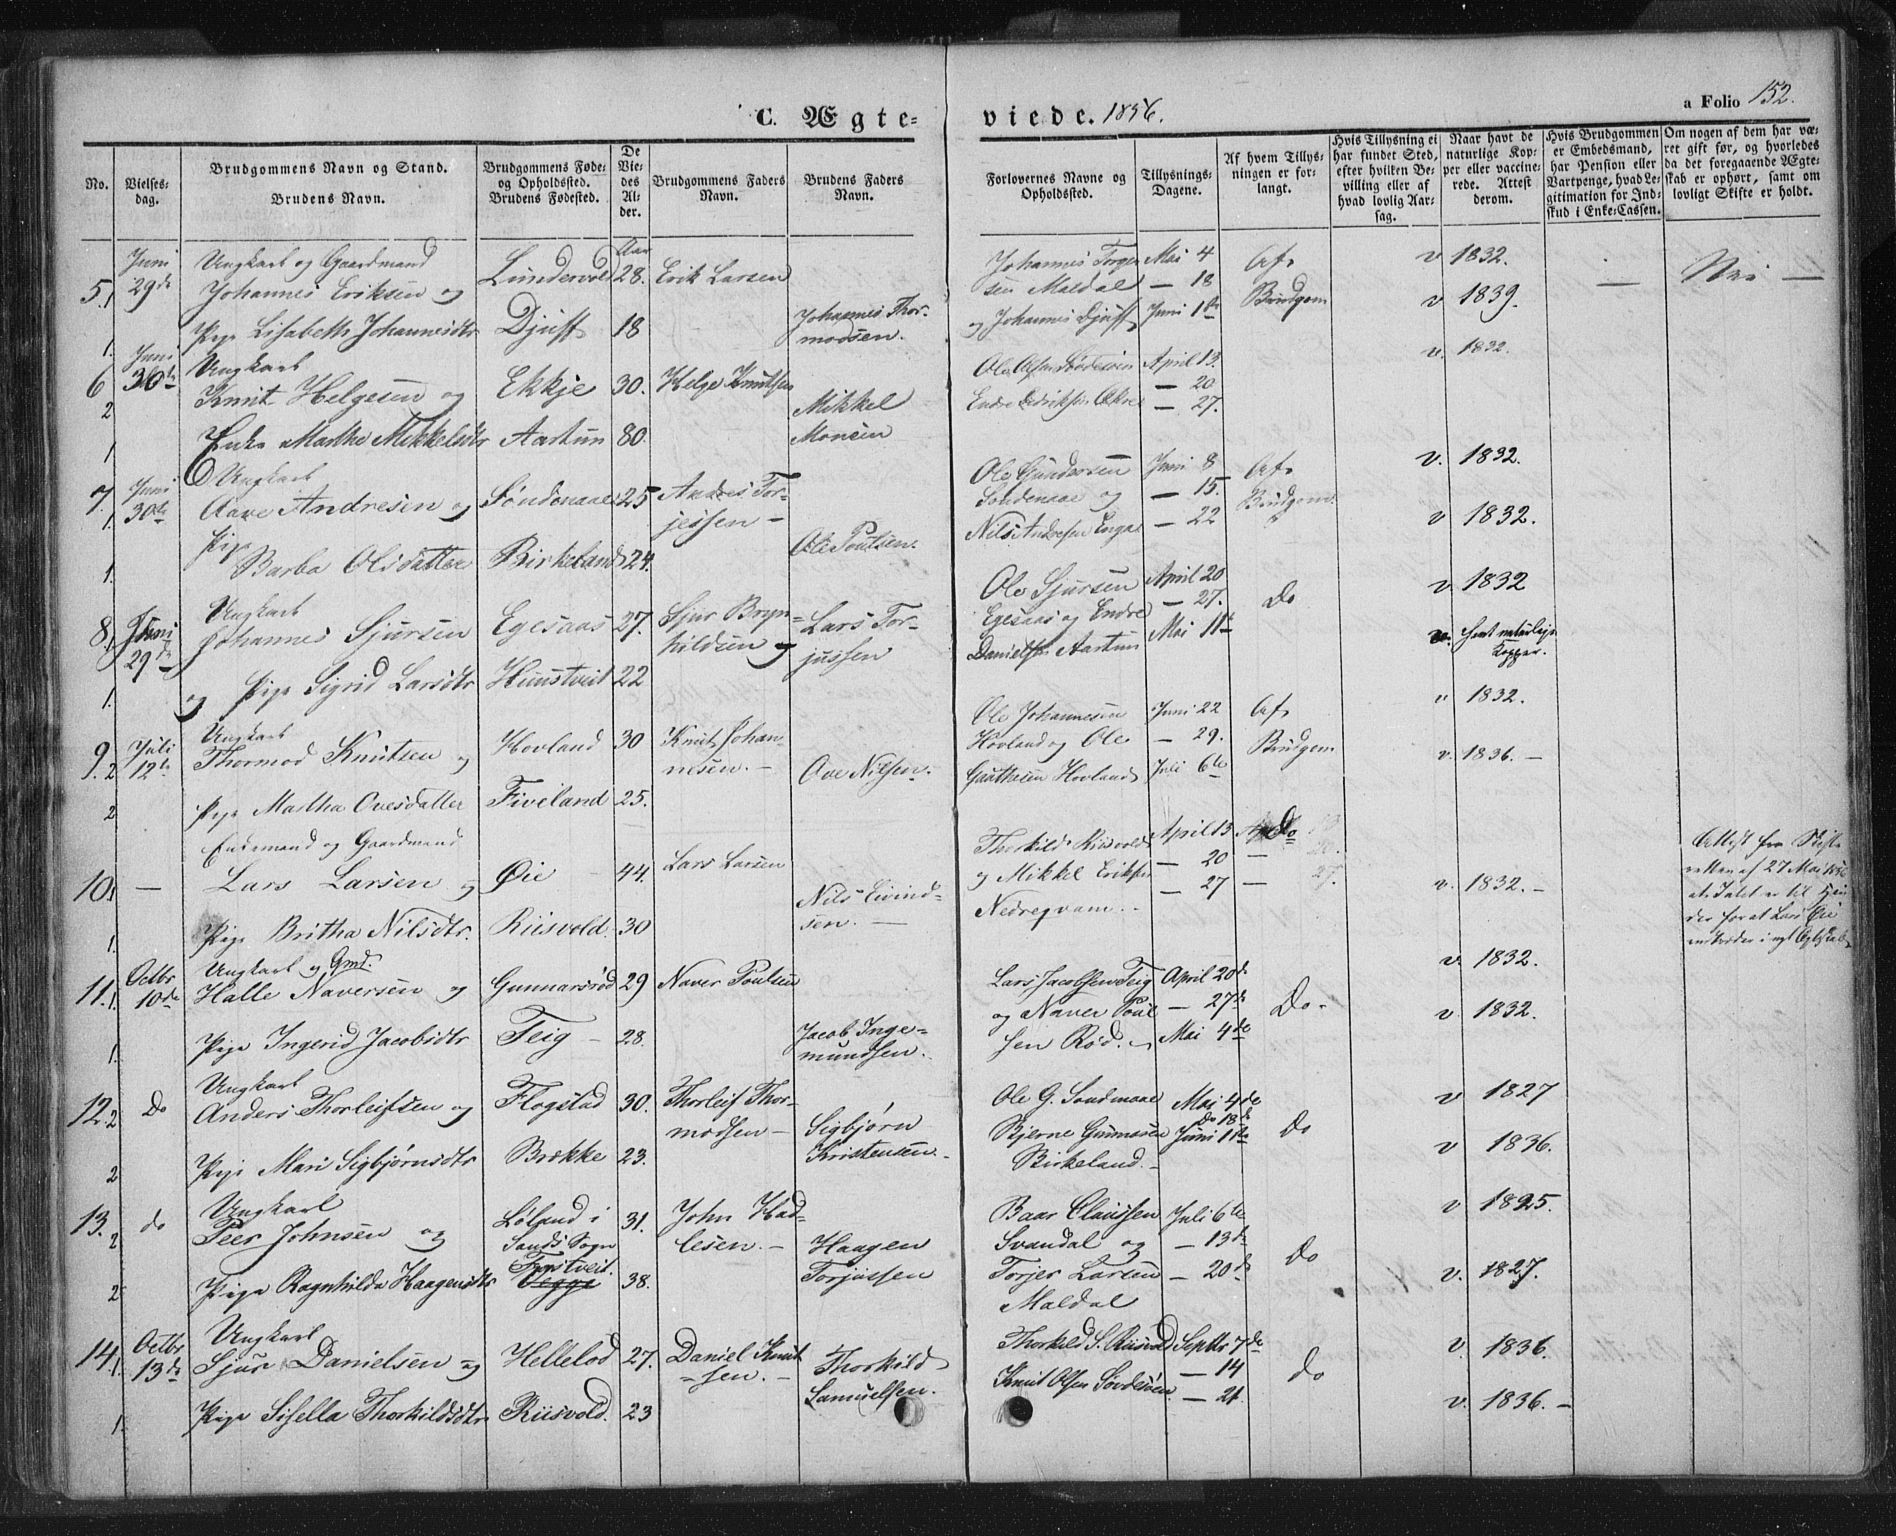 C. Ægte- viede. 1856.
a Folio 152.
No.
Vielses-dag.
Brudgommens Navn og Stand.
Brudens Navn.
Brudgommens Føde- og Opholdssted.
Brudens Fødested.
De Viedes Alder.
Brudgommens Faders Navn.
Brudens Faders Navn.
Forlovernes Navne og Opholdssted.
Tillysnings-Dagene.
Af hvem Tillysningen er forlangt.
Hvis Tillysning ei har fundet Sted, efter hvilken Bevilling eller af hvad lovlig Aarsag.
Naar havt de naturlige Kopper eller vaccinerede. Attest derom.
Hvis Brudgommen er Embedsmand, har Pension eller Vartpenge, hvad Legitimation for Indskud i Enke-Cassen.
Om nogen af dem har været gift før, og hvorledes da det foregaaende Ægteskab er ophørt, samt om lovligt Skifte er holdt.
Juni Ungkarl og Gaardmand Aar Johannes Torger- Mai 4 Af v 1832.
5. 1 29de Johannes Eriksen og Lundervold 28. Erik Larsen sen Maldal — 18 Brudgom — Nei —
1. Pige Lisabeth Johannesdtr Djuff 18 Johannes Thor- og Johannes Djuff Juni 1ste v 1839.
modsen.
Juni Ungkarl Ole April 13. v. 1832.
6 2 30te Knut Helgesen og Ekkje 30. Helge Knutsen — 20
1 Enke Martha Mikkelsdtr Aartun 80. Mikkel Endre — 27.
Monsen
Ungkarl Ole Gundersen Juni 8 Af v. 1832.
7. 1. Juni 30te Aave Andresen og Søndenaae 25 Andres Tor- Søndenaae og — 15. Brudgom.
jessen — Nils Andresen — 22 v 1832.
1. Pige Barba Olsdatter Birkeland 24. Ole Poulsen.
Ungkarl Ole Sjursen April 20 v 1832
8. 1 Juni 29de Johannes Sjursen Egesaas 27. Sjur Bryn- Lars Tor- Egesaas og Endre — 27. Do
hildsen jussen Danielsen Aartun Mai 11te v. havt naturlige Kopper.
1. og Pige Sigrid Larsdtr Hunstveit 22
Ungkarl Ole Johannesen Juni 22 Af v 1832.
9. 2 Juli 12te Thormod Knutsen og Hovland 30 Knut Johan- Hovland og Ole — 29. Brudgom
nesen. — Ove Nilsen. Hovland Juli 6te v. 1836. —
2 Pige Martha Ovesdatter Fiveland 25.
Enkemand og Gaardmand Thorkild Riisvold April 13 Do Attest fra Skifte-
10. 1 — Lars Larsen og Øie 44. Lars Larsen og Mikkel Eriksen — 20 — retten af 27 Mai 1856
Nils Eivind- Nedreqvam. — 27 — v. 1832. — at Intet er til Hin-
1. Pige Britha Nilsdtr. Riisvold. 30 sen. — der for at Lars Øie
indtræder i nyt Ægteskab
Ungkarl og Gmd. v. 1832.
11. 1. Octbr 10de Halle Naversen og Gunnarsrød 29 Naver Poulsen Lars Jacobsen Teig April 20de
og Naver Poul- — 27de Do.
1. Pige Ingerid Jacobsdtr Teig — 28. Jacob Inge- sen Rød. Mai 4de v. 1832.
mundsen.
Ungkarl v 1827
12. 2 Do Anders Thorleifsen og Flogstad 30. Thorleif Thor- Ole G. Søndenaae Mai 4de
modsen — Sigbjørn Bjerne Gunnarsen Do 18de Juni 1ste Do
2 Pige Mari Sigbjørnsdtr Brække 23. Kristensen. Birkeland. v 1836.
Ungkarl
13. 2 do Peer Johnsen og Løland i Sands Sogn 31. John Had- Baar Claussen Juli 6te v 1825.
lesen. — Haagen Svandal og — 13de Do
2 Pige Ragnhilda Haagensdtr Tystveit. 38. Torjussen Torjer Larsen — 20de v. 1827.
Maldal
Ungkarl
14. 1. Octbr 13de Sjur Danielsen og Hellelod 27. Daniel Knut- Thorkild S. Riisvold Septbr 7de v. 1836.
sen. — Thorkild Knut Olsen — 14 do
1. Pige Sisella Thorkildsdtr Riisvold. 23 Samuelsen. — 21. v. 1836. —